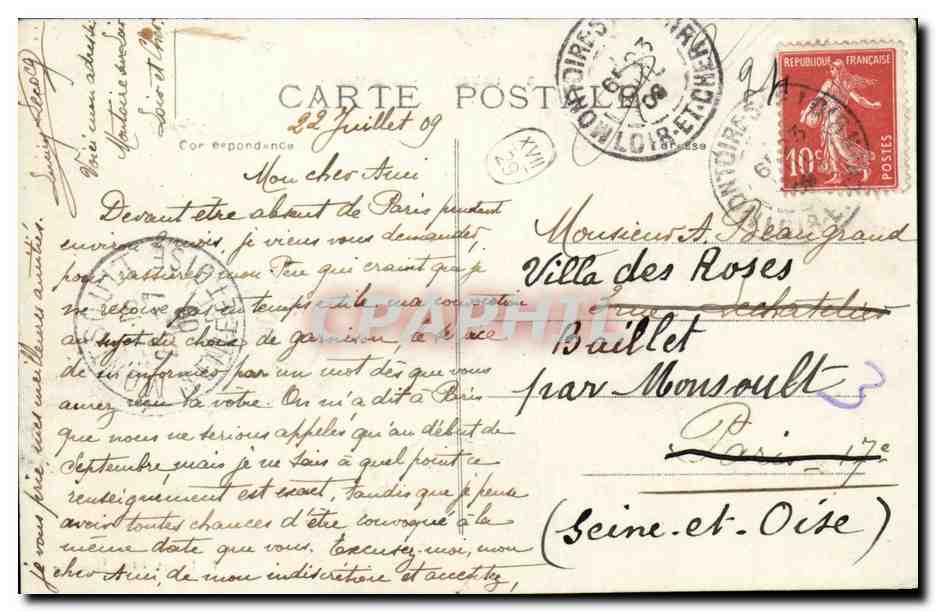 CARTE POSTALE
Correspondance
22 Juillet 09
Mon cher Ami
Devant être absent de Paris pendant
environ 2 mois, je viens vous demander,
pour rassurer mon Père qui craint que je
ne reçoive pas en temps utile ma convocation
au sujet du choix de garnison, le service
de m'informer par un mot dès que vous
aurez reçu la vôtre. On m'a dit à Paris
que nous ne serions appelés qu'au début de
Septembre mais je ne sais à quel point ce
renseignement est exact, tandis que je pense
avoir toutes chances d'être convoqué à la
même date que vous. Excusez-moi, mon
cher Ami, de mon indiscrétion et acceptez,
je vous prie mes meilleures amitiés.
Voici mon adresse
Montoire sur Loir
Loir et Cher
XVII
29
MONTOIRE
LOIR-ET-CHER
REPUBLIQUE FRANÇAISE
10c
POSTES
Monsieur A. Beaugrand
Villa des Roses
rue Lechatelier
Baillet
par Monsoult
3
Paris 17e
(Seine-et-Oise)
CPAPHIL